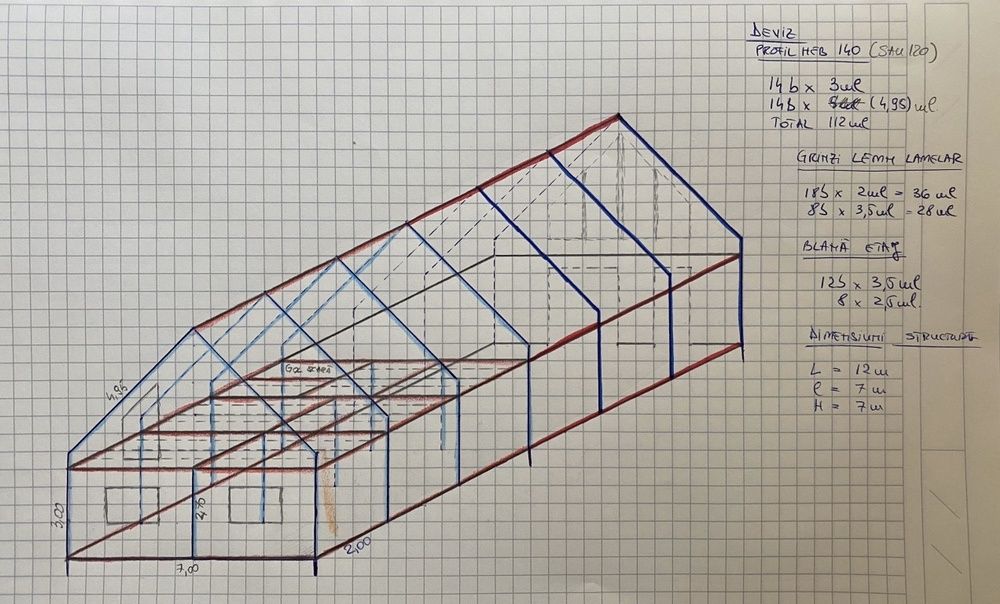 DEVIZ
PROFIL HEB 140 (SAU 120)
14b x 3ml
14b x (4,95) ml
TOTAL 112ml
GRINZI LEMN LAMELAR
18b x 2ml = 36 ml
8b x 3,5ml = 28ml
BLANĂ ETAJ
12b x 3,5ml
8 x 2,5ml.
DIMENSIUNI STRUCTURĂ
L = 12m
l = 7m
H = 7m
4,95
Gol scară
3,00
2,75
7,00
2,00